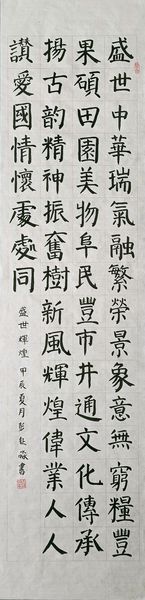 盛世中華瑞氣融繁榮景象意無窮糧豐
果碩田園美物阜民豐市井通文化傳承
揚古韵精神振奮樹新風輝煌偉業人人
讃愛國情懷處處同
盛世輝煌 甲辰夏月彭
書